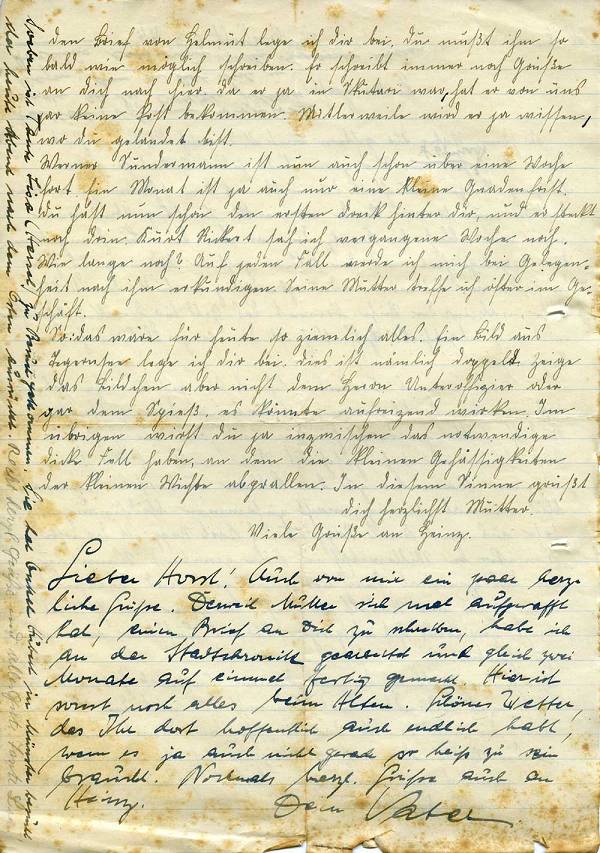 den Brief von Helmut lege ich dir bei. Du mußt ihm so
bald wie möglich schreiben. Er schreibt immer noch Grüße
an dich nach hier, da er ja in Skutari war, hat er von uns
gar keine Post bekommen. Mitlerweile wird er ja wissen,
wo du gelandet bist.
Werner Sundermann ist nun auch schon über eine Woche
fort. Ein Monat ist ja auch nur eine kleine Gnadenfrist.
Du hast nun schon den ersten Dreck hinter dir, und er steckt
noch drin. Kurt Rickert sah ich vergangene Woche noch.
Wie lange noch? Auf jeden Fall werde ich mich bei Gelegen-
heit nach ihm erkundigen. Seine Mutter treffe ich öfter im Ge-
schäft.
So: das wäre für heute so ziemlich alles. Ein Bild aus
Tegernsee lege ich dir bei. dies ist nämlich doppelt. Zeige
das Bildchen aber nicht dem Herrn Unteroffizier oder
gar dem Spieß. es könnte aufreizend wirken. Im
übrigen wirst du ja inzwischen das notwendige
dicke Fell haben, an dem die kleinen Gehässigkeiten
der kleinen Wichte abprallen. In diesem Sinne grüßt
dich herzlichst Mutter.
Viele Grüße an Heinz.
Lieber Horst! Auch von mir ein paar herz-
liche Grüße. Derweil Mutter sich mal aufgerafft
hat, einen Brief an Dich zu schreiben, habe ich
an der Stadtchronik gearbeitet und gleich zwei
Monate auf einmal fertig gemacht. Hier ist
sonst noch alles beim Alten. Schönes Wetter,
das Ihr dort hoffentlich auch endlich habt,
wenn es ja auch nicht gerade so heiß zu sein
braucht. Nochmals herzl. Grüße auch an
Heinz. Dein Vater
Soeben ist Tante Lisa (Herne) zu Besuch gekommen. Sie hat Onkel in Münster besucht,
der heute Abend nach dem Osten ausrückt.